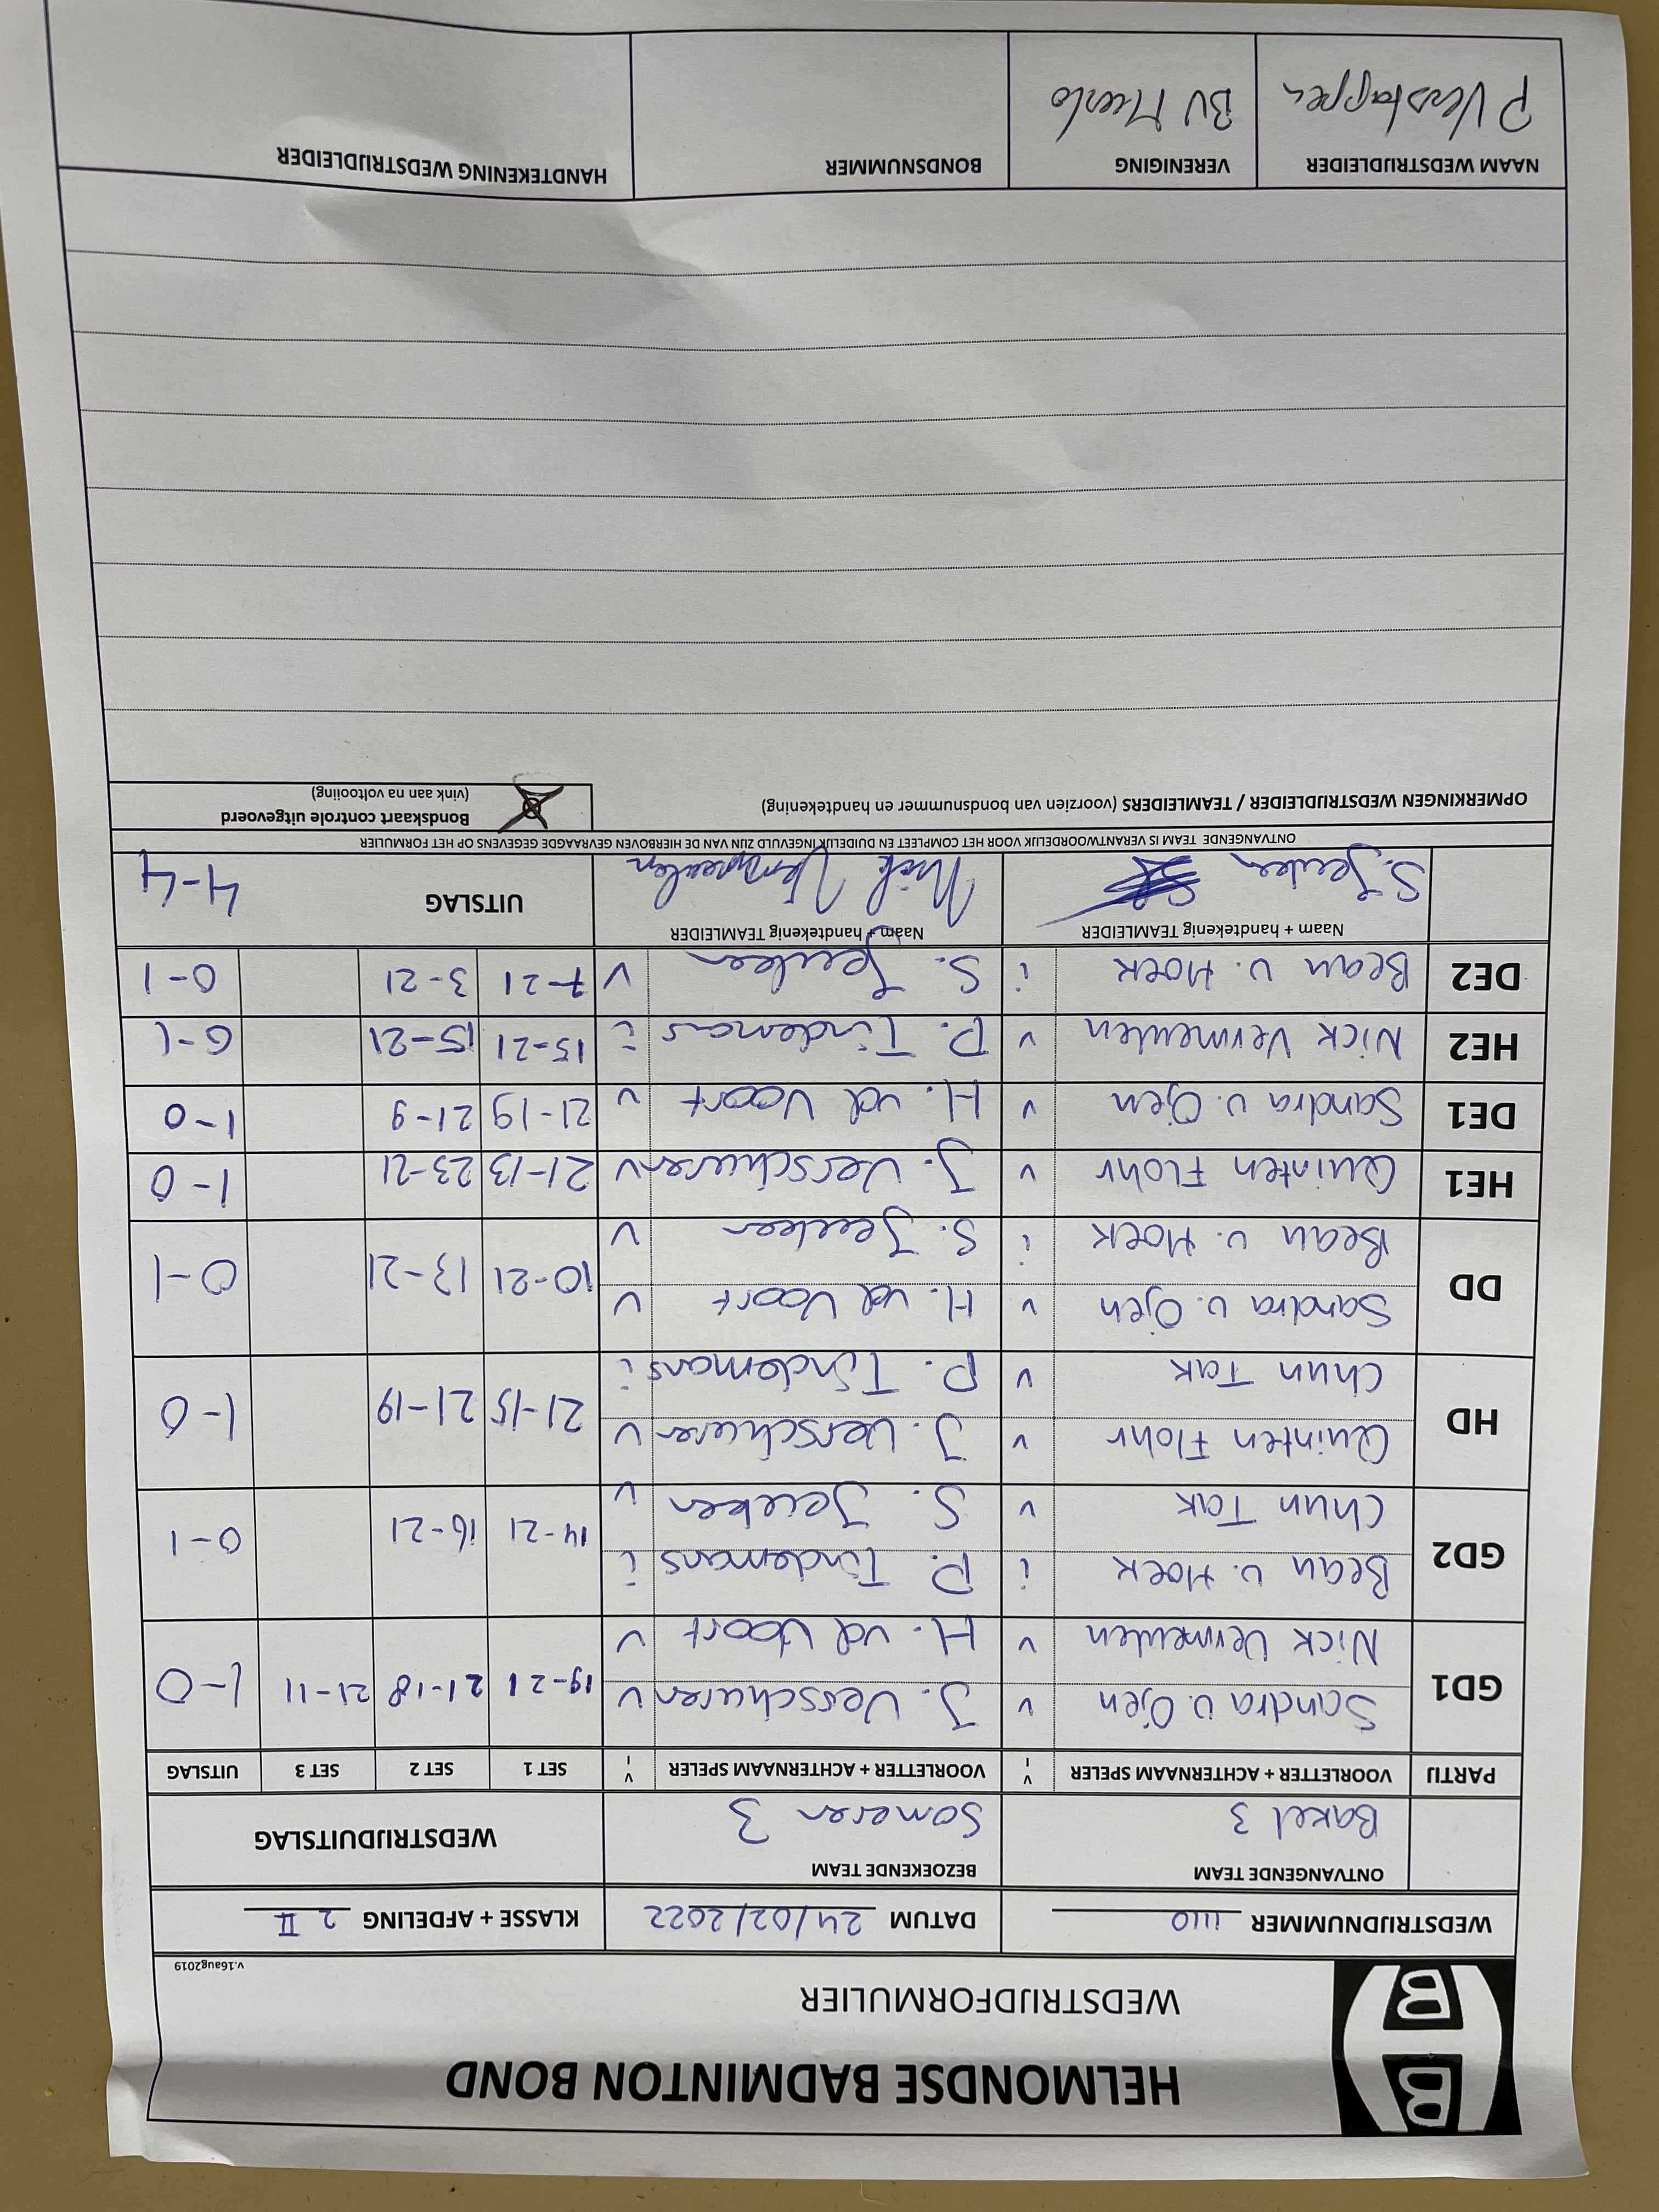 HELMONDSE BADMINTON BOND
WEDSTRIJDFORMULIER
v.16aug2019
WEDSTRIJDNUMMER 1110 DATUM 24/02/2022 KLASSE + AFDELING 2 II
ONTVANGENDE TEAM BEZOEKENDE TEAM
Bakel 3 Someren 3 WEDSTRIJDUITSLAG
PARTIJ VOORLETTER + ACHTERNAAM SPELER V I VOORLETTER + ACHTERNAAM SPELER V I SET 1 SET 2 SET 3 UITSLAG
GD1 Sandra v. Ojen v J. Verschuren v 19-21 21-18 21-11 1-0
Nick Vermeulen v H. vd Voort v
GD2 Beau v. Hoek i P. Tindemans i 14-21 16-21 0-1
Chun Tak v S. Jeucken v
HD Quinten Flohr v J. Verschuren v 21-15 21-19 1-0
Chun Tak v P. Tindemans i
DD Sandra v. Ojen v H. vd Voort v 10-21 13-21 0-1
Beau v. Hoek i S. v
HE1 Quinten Flohr v J. Verschuren v 21-13 23-21 1-0
DE1 Sandra v. Ojen v H. vd Voort v 21-19 21-9 1-0
HE2 Nick Vermeulen v P. Tindemans i 15-21 15-21 0-1
DE2 Beau v. Hoek i S. v 7-21 3-21 0-1
Naam + handtekenig TEAMLEIDER Naam + handtekenig TEAMLEIDER
S. Nick Vermeulen UITSLAG 4-4
ONTVANGENDE TEAM IS VERANTWOORDELIJK VOOR HET COMPLEET EN DUIDELIJK INGEVULD ZIJN VAN DE HIERBOVEN GEVRAAGDE GEGEVENS OP HET FORMULIER
OPMERKINGEN WEDSTRIJDLEIDER / TEAMLEIDERS (voorzien van bondsnummer en handtekening)
Bondskaart controle uitgevoerd
(vink aan na voltooiing)
NAAM WEDSTRIJDLEIDER VERENIGING BONDSNUMMER HANDTEKENING WEDSTRIJDLEIDER
P Verstappen BV Mierlo